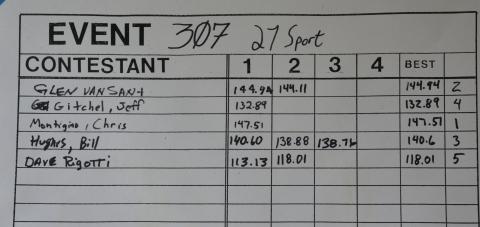 EVENT 307 27 Sport
CONTESTANT 1 2 3 4 BEST
GLEN VANSANT 144.94 144.11 144.94 2
Gitchel, Jeff 132.89 132.89 4
Montigino, Chris 147.51 147.51 1
Hughes, Bill 140.60 138.88 138.76 140.6 3
DAVE Rigotti 113.13 118.01 118.01 5